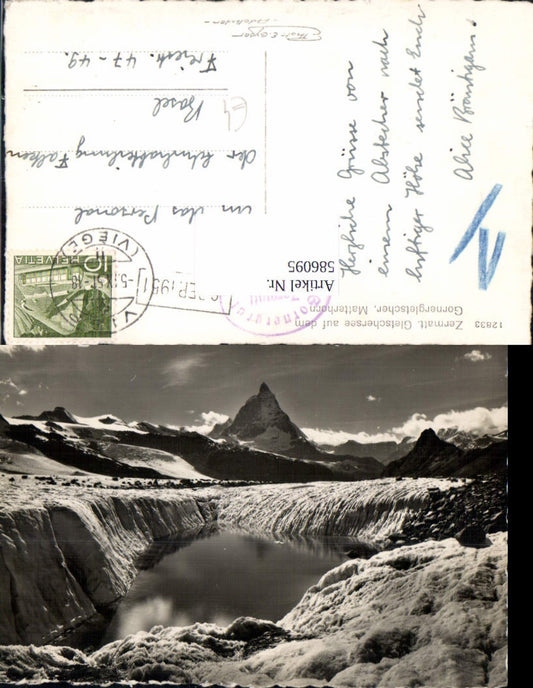 12833 Zermatt. Gletschersee auf dem
Gornergletscher, Matterhorn
Herzliche Grüsse von
einem Abstecher nach
luftiger Höhe sendet Euch
Alice Bräutigam.
an das Personal
der Schuhabteilung Falken
Basel
Freiestr. 47-49.
HELVETIA
5
VISP
(VIEGE)
-5.IX.51-18
Gornergrat
Zermatt
Artikel Nr.
586095